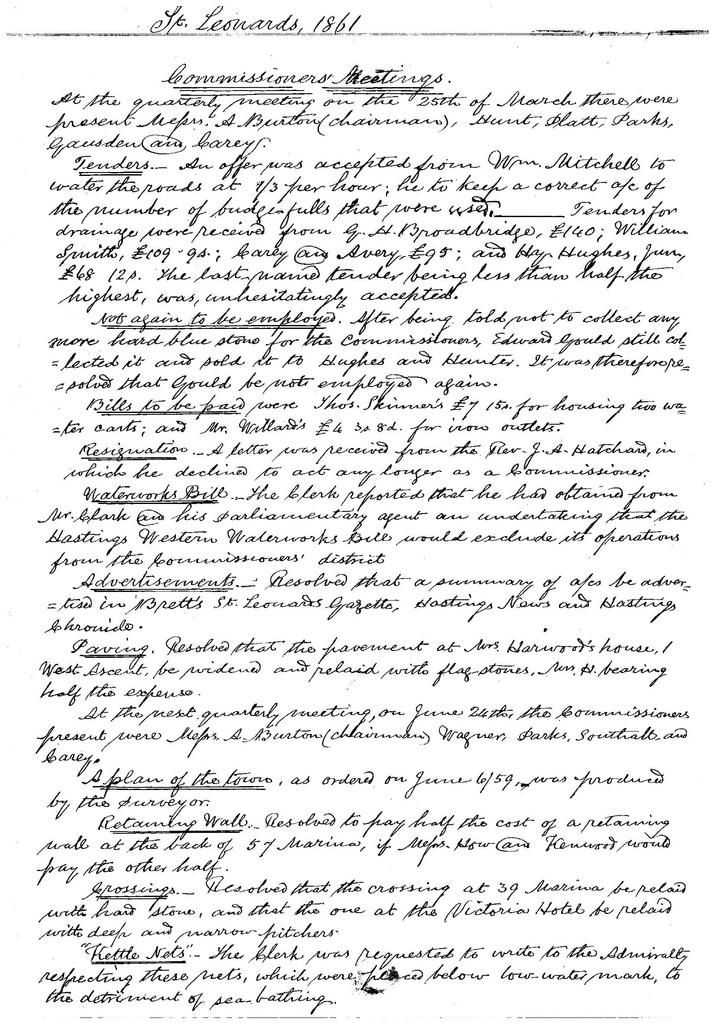 St. Leonards, 1861
Commissioners' Meetings.
At the quarterly meeting on the 25th of March there were
present Messrs. A Burton (chairman), Hunt, Platt, Parks,
Gausden and Carey.
Tenders. — An offer was accepted from Wm. Mitchell to
water the roads at 1/3 per hour; he to keep a correct a/c of
the number of budge-fulls that were used. Tenders for
drainage were received from G. H. Broadbridge, £140; William
Smith, £109-9s.; Carey and Avery, £95; and Hy. Hughes, Jun.,
£68 12s. The last named tender being less than half the
highest, was, unhesitatingly accepted.
Not again to be employed. After being told not to collect any
more hard blue stone for the Commissioners, Edward Gould still col=
=lected it and sold it to Hughes and Hunter. It was therefore re=
=solved that Gould be not employed again.
Bills to be paid were Thos. Skinner's £7 15s. for housing two wa=
=ter carts; and Mr. Willard's £4 3s 8d. for iron outlets.
Resignation. — A letter was received from the Rev. J. A. Hatchard, in
which he declined to act any longer as a Commissioner.
Waterworks Bill. — The Clerk reported that he had obtained from
Mr. Clark and his Parliamentary agent an undertaking that the
Hastings Western Waterworks Bill would exclude its operations
from the Commissioners' district
Advertisements. — Resolved that a summary of a/cs be adver=
=tised in Brett's St. Leonards Gazette, Hastings News and Hastings
Chronicle.
Paving. Resolved that the pavement at Mrs. Harwood's house, 1
West Ascent, be widened and relaid with flag-stones, Mrs. H. bearing
half the expense.
At the next quarterly meeting, on June 24th, the Commissioners
present were Messrs. A. Burton (chairman) Wagner, Parks, Southall and
Carey.
A plan of the town, as ordered on June 6/59, was produced
by the surveyor.
Retaining Wall. — Resolved to pay half the cost of a retaining
wall at the back of 57 Marina, if Messrs. How and Kenwood would
pay the other half.
Crossings. — Resolved that the crossing at 39 Marina be relaid
with hard stone, and that the one at the Victoria Hotel be relaid
with deep and narrow pitchers.
"Kettle Nets" — The Clerk was requested to write to the Admiralty
respecting these nets, which were placed below low-water mark, to
the detriment of sea-bathing.